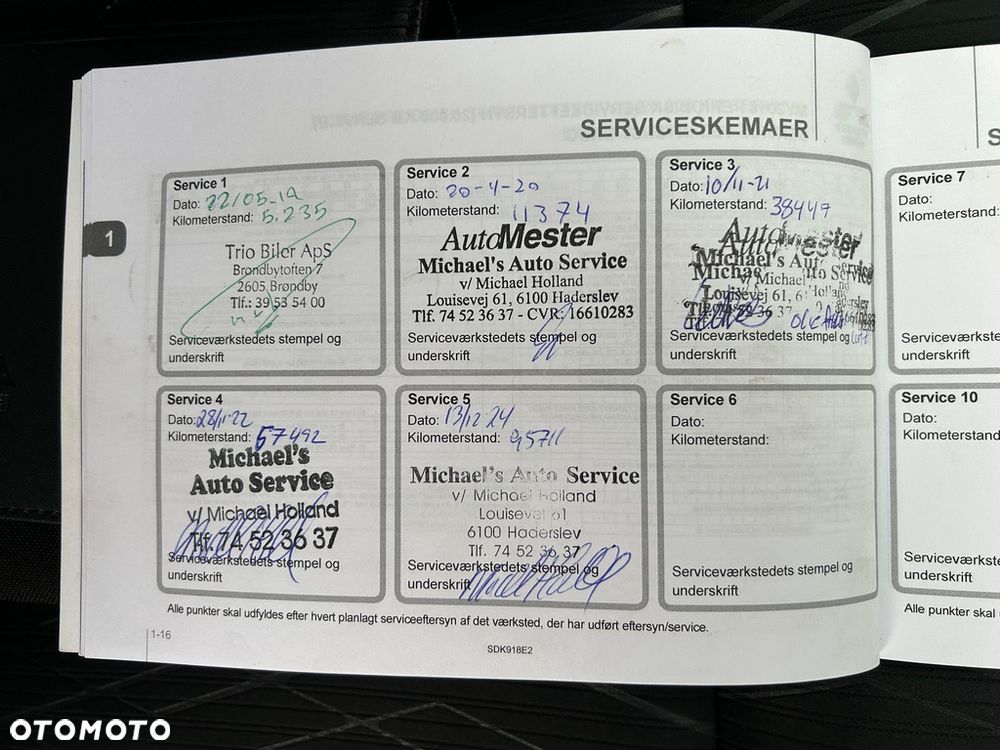 SERVICESKEMAER
S
1
Service 1
Dato: 22/05-19
Kilometerstand: 5.235
Trio Biler ApS
Brøndbytoften 7
2605 Brøndby
Tlf.: 39 53 54 00
Serviceværkstedets stempel og
underskrift
Service 2
Dato: 20-4-20
Kilometerstand: 11374
AutoMester
Michael's Auto Service
v/ Michael Holland
Louisevej 61, 6100 Haderslev
Tlf. 74 52 36 37 - CVR: 16610283
Serviceværkstedets stempel og
underskrift
Service 3
Dato: 10/11-21
Kilometerstand: 38447
AutoMester
Michael's Auto Service
v/ Michael Holland
Louisevej 61, 6100 Haderslev
Serviceværkstedets stempel og
underskrift
Service 7
Dato:
Kilometerstand:
Serviceværkste
underskrift
Service 4
Dato: 28/11-22
Kilometerstand: 67492
Michael's
Auto Service
v/ Michael Holland
Tlf. 74 52 36 37
Serviceværkstedets stempel og
underskrift
Service 5
Dato: 13/12-24
Kilometerstand: 95711
Michael's Auto Service
v/ Michael Holland
Louisevej 61
6100 Haderslev
Tlf. 74 52 36 37
Serviceværkstedets stempel og
underskrift
Service 6
Dato:
Kilometerstand:
Serviceværkstedets stempel og
underskrift
Service 10
Dato:
Kilometerstand
Serviceværkste
underskrift
Alle punkter skal udfyldes efter hvert planlagt serviceeftersyn af det værksted, der har udført eftersyn/service.
Alle punkter skal
1-16
SDK918E2
OTOMOTO